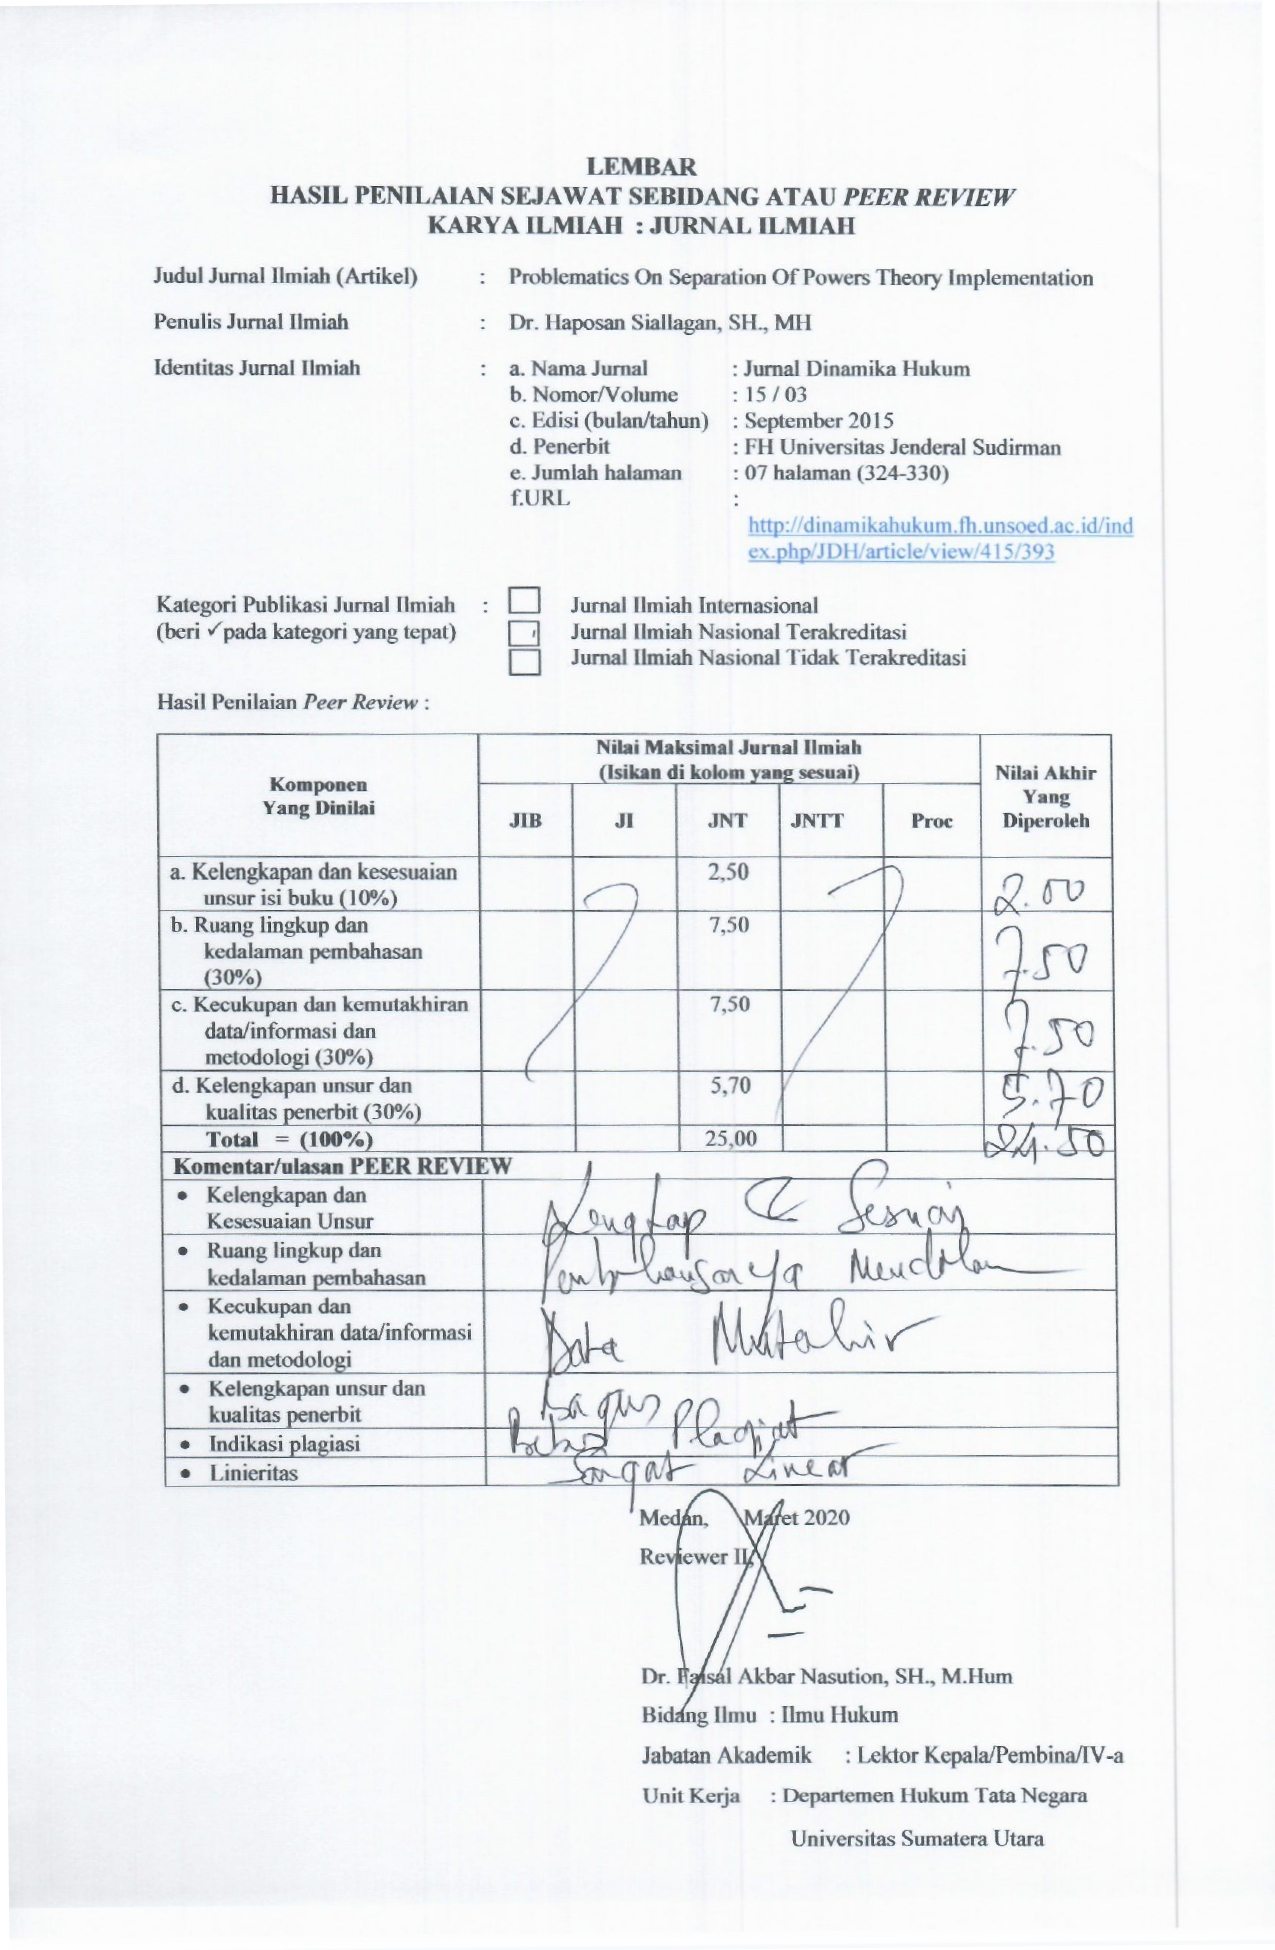 LEMBAR
HASIL PENILAIAN SEJAWAT SEBIDANG ATAU PEER REVIEW
KARYA ILMIAH : JURNAL ILMIAH
Judul Jurnal Ilmiah (Artikel) : Problematics On Separation Of Powers Theory Implementation
Penulis Jurnal Ilmiah : Dr. Haposan Siallagan, SH., MH
Identitas Jurnal Ilmiah : a. Nama Jurnal : Jurnal Dinamika Hukum
b. Nomor/Volume : 15 / 03
c. Edisi (bulan/tahun) : September 2015
d. Penerbit : FH Universitas Jenderal Sudirman
e. Jumlah halaman : 07 halaman (324-330)
f.URL :
http://dinamikahukum.fh.unsoed.ac.id/ind
ex.php/JDH/article/view/415/393
Kategori Publikasi Jurnal Ilmiah : Jurnal Ilmiah Internasional
(beri ✓pada kategori yang tepat) Jurnal Ilmiah Nasional Terakreditasi
Jurnal Ilmiah Nasional Tidak Terakreditasi
Hasil Penilaian Peer Review :
Komponen
Yang Dinilai
Nilai Maksimal Jurnal Ilmiah
(Isikan di kolom yang sesuai)
Nilai Akhir
Yang
Diperoleh
JIB JI JNT JNTT Proc
a. Kelengkapan dan kesesuaian 2,50 2.00
unsur isi buku (10%)
b. Ruang lingkup dan 7,50 7.50
kedalaman pembahasan
(30%)
c. Kecukupan dan kemutakhiran 7,50 7.50
data/informasi dan
metodologi (30%)
d. Kelengkapan unsur dan 5,70 5.70
kualitas penerbit (30%)
Total = (100%) 25,00 24.50
Komentar/ulasan PEER REVIEW
• Kelengkapan dan Lengkap & Sesuai
Kesesuaian Unsur
• Ruang lingkup dan Pembahasanya Mendalam
kedalaman pembahasan
• Kecukupan dan Data Mutahir
kemutakhiran data/informasi
dan metodologi
• Kelengkapan unsur dan Bagus
kualitas penerbit
• Indikasi plagiasi Bebas Plagiat
• Linieritas Sangat Linear
Medan, Maret 2020
Reviewer II,
Dr. Faisal Akbar Nasution, SH., M.Hum
Bidang Ilmu : Ilmu Hukum
Jabatan Akademik : Lektor Kepala/Pembina/IV-a
Unit Kerja : Departemen Hukum Tata Negara
Universitas Sumatera Utara